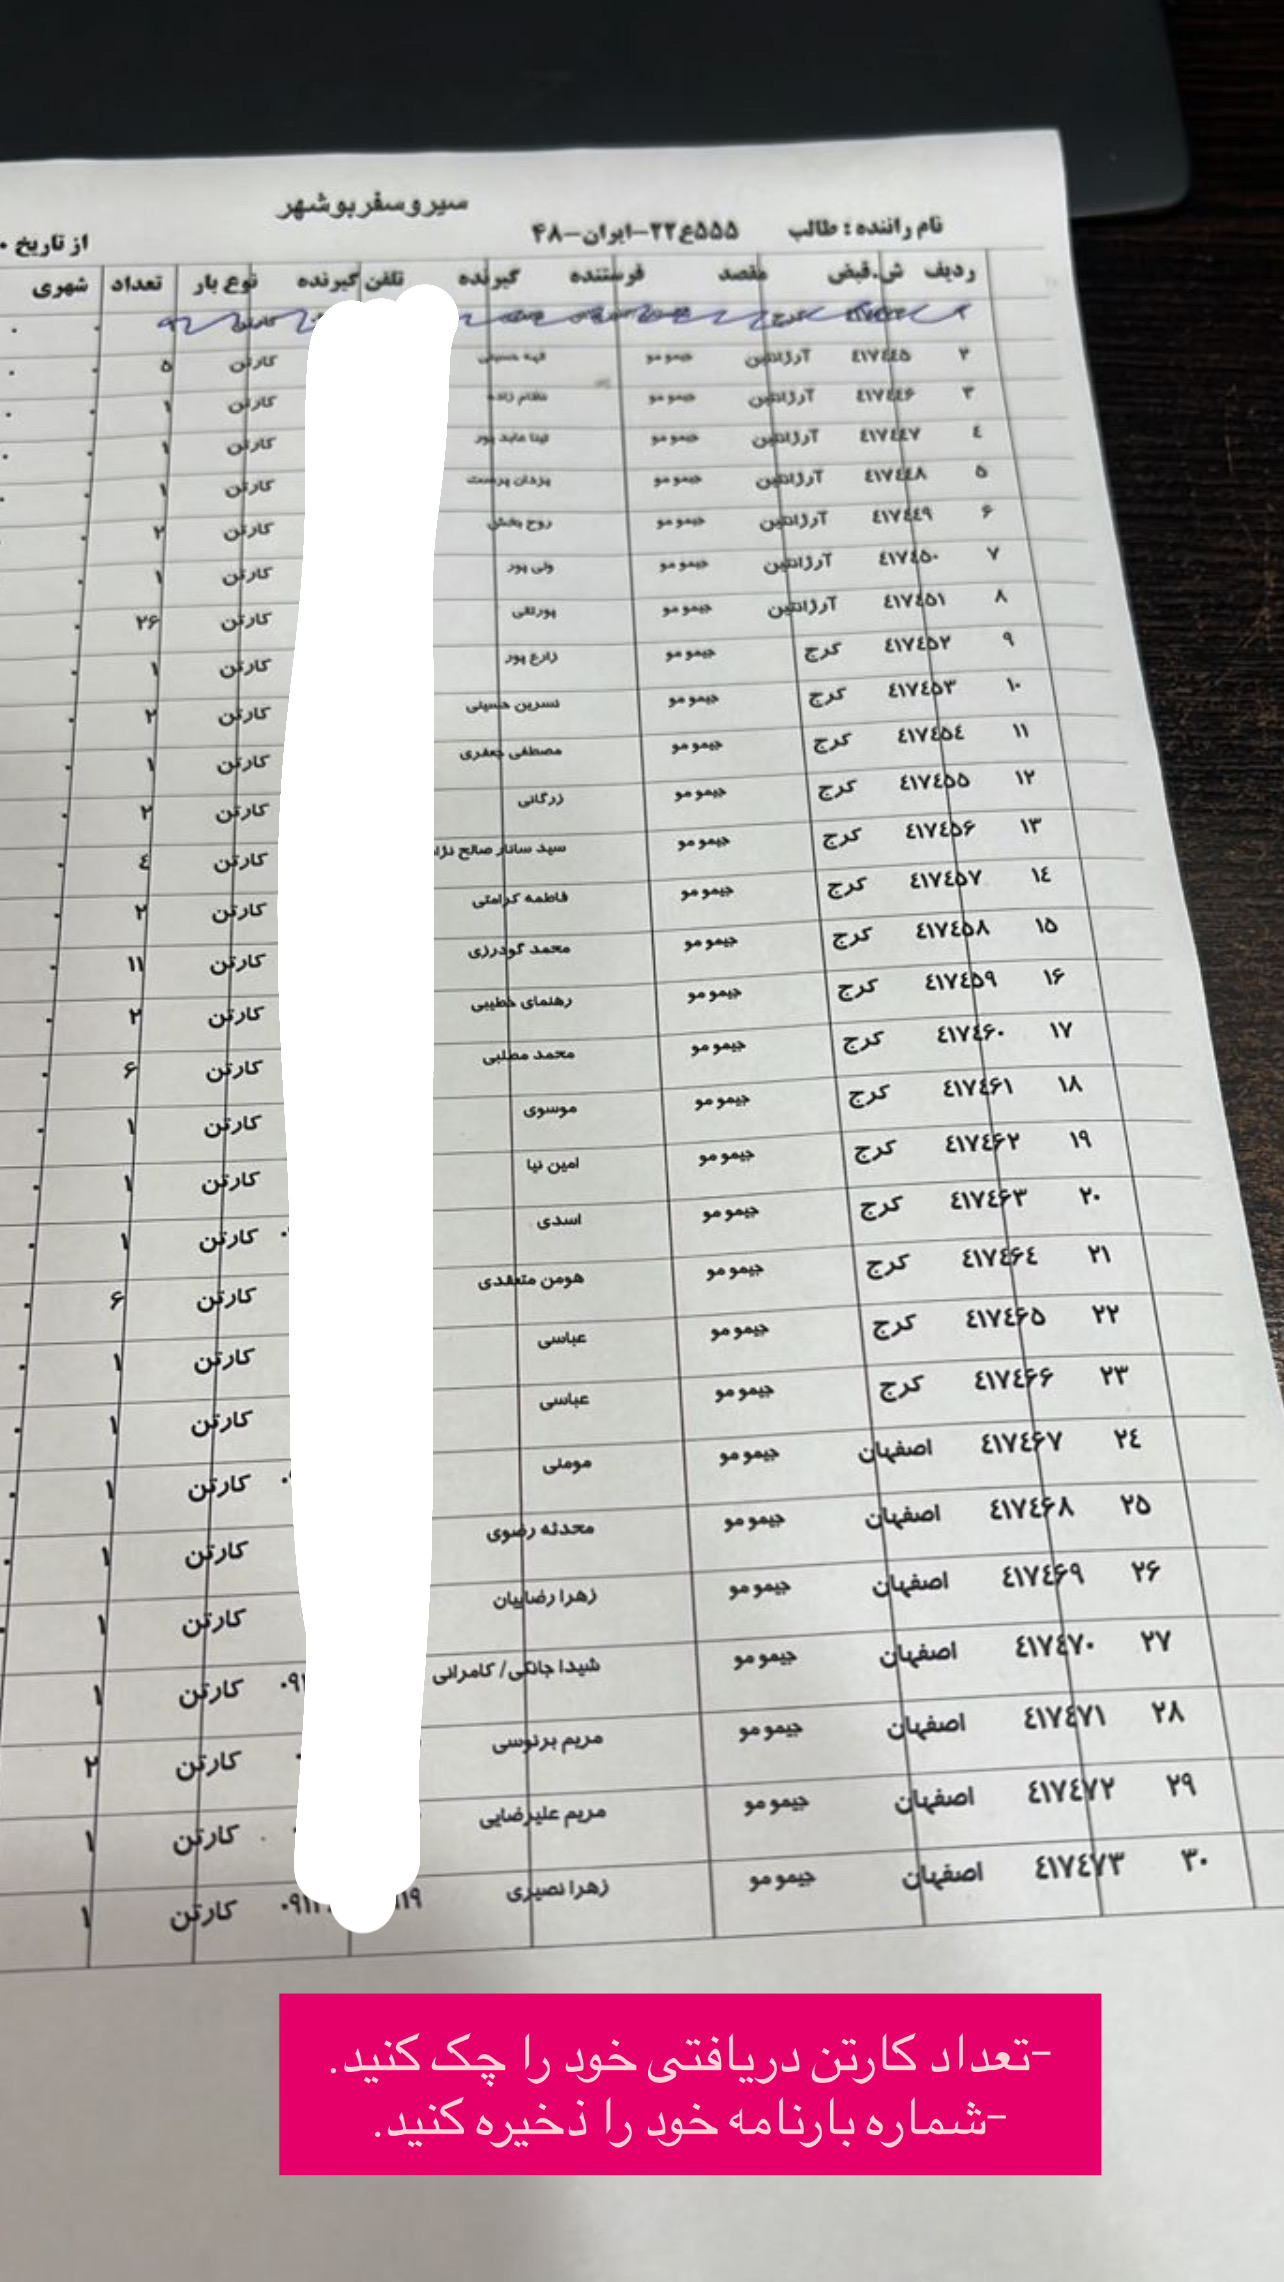 سیر و سفر بوشهر
نام راننده : طالب ۵۵۵ع۲۲-ایران-۴۸ از تاریخ
ردیف ش.قبض مقصد فرستنده گیرنده تلفن گیرنده نوع بار تعداد شهری
کرج کارتن
۲ ٤١٧٤٤٥ آرژانتین جیمو مو الهه حسینی کارتن ۵ ۰
۳ ٤١٧٤٤۶ آرژانتین جیمو مو نظام زاده کارتن ۱ ۰
٤ ٤١٧٤٤٧ آرژانتین جیمو مو لینا عابد پور کارتن ۱ ۰
۵ ٤١٧٤٤٨ آرژانتین جیمو مو یزدان پرست کارتن ۱ ۰
۶ ٤١٧٤٤٩ آرژانتین جیمو مو روح بخش کارتن ۲ ۰
۷ ٤١٧٤٥٠ آرژانتین جیمو مو ولی پور کارتن ۱ ۰
۸ ٤١٧٤٥١ آرژانتین جیمو مو پورتقی کارتن ۲۶ ۰
۹ ٤١٧٤٥٢ کرج جیمو مو زارع پور کارتن ۱ ۰
۱۰ ٤١٧٤٥٣ کرج جیمو مو نسرین حسینی کارتن ۲ ۰
۱۱ ٤١٧٤٥٤ کرج جیمو مو مصطفی جعفری کارتن ۱ ۰
۱۲ ٤١٧٤٥٥ کرج جیمو مو زرگانی کارتن ۲ ۰
۱۳ ٤١٧٤٥۶ کرج جیمو مو سید سانار صالح نژاد کارتن ٤ ۰
۱٤ ٤١٧٤٥٧ کرج جیمو مو فاطمه کرامتی کارتن ۲ ۰
۱۵ ٤١٧٤٥٨ کرج جیمو مو محمد گودرزی کارتن ۱۱ ۰
۱۶ ٤١٧٤٥٩ کرج جیمو مو رهنمای خطیبی کارتن ۲ ۰
۱۷ ٤١٧٤۶٠ کرج جیمو مو محمد مطلبی کارتن ۶ ۰
۱۸ ٤١٧٤۶١ کرج جیمو مو موسوی کارتن ۱ ۰
۱۹ ٤١٧٤۶٢ کرج جیمو مو امین نیا کارتن ۱ ۰
۲۰ ٤١٧٤۶٣ کرج جیمو مو اسدی کارتن ۱ ۰
۲۱ ٤١٧٤۶٤ کرج جیمو مو هومن متعقدی کارتن ۶ ۰
۲۲ ٤١٧٤۶٥ کرج جیمو مو عباسی کارتن ۱ ۰
۲۳ ٤١٧٤۶۶ کرج جیمو مو عباسی کارتن ۱ ۰
۲٤ ٤١٧٤۶٧ اصفهان جیمو مو مومنی کارتن ۱ ۰
۲۵ ٤١٧٤۶٨ اصفهان جیمو مو محدثه رضوی کارتن ۱ ۰
۲۶ ٤١٧٤۶٩ اصفهان جیمو مو زهرا رضاییان کارتن ۱ ۰
۲۷ ٤١٧٤٧٠ اصفهان جیمو مو شیدا جانکی/ کامرانی ۰۹ کارتن ۱
۲۸ ٤١٧٤٧١ اصفهان جیمو مو مریم برنوسی کارتن ۲
۲۹ ٤١٧٤٧٢ اصفهان جیمو مو مریم علیرضایی کارتن ۱
۳۰ ٤١٧٤٧٣ اصفهان جیمو مو زهرا نصیری کارتن ۱
-تعداد کارتن دریافتی خود را چک کنید.
-شماره بارنامه خود را ذخیره کنید.